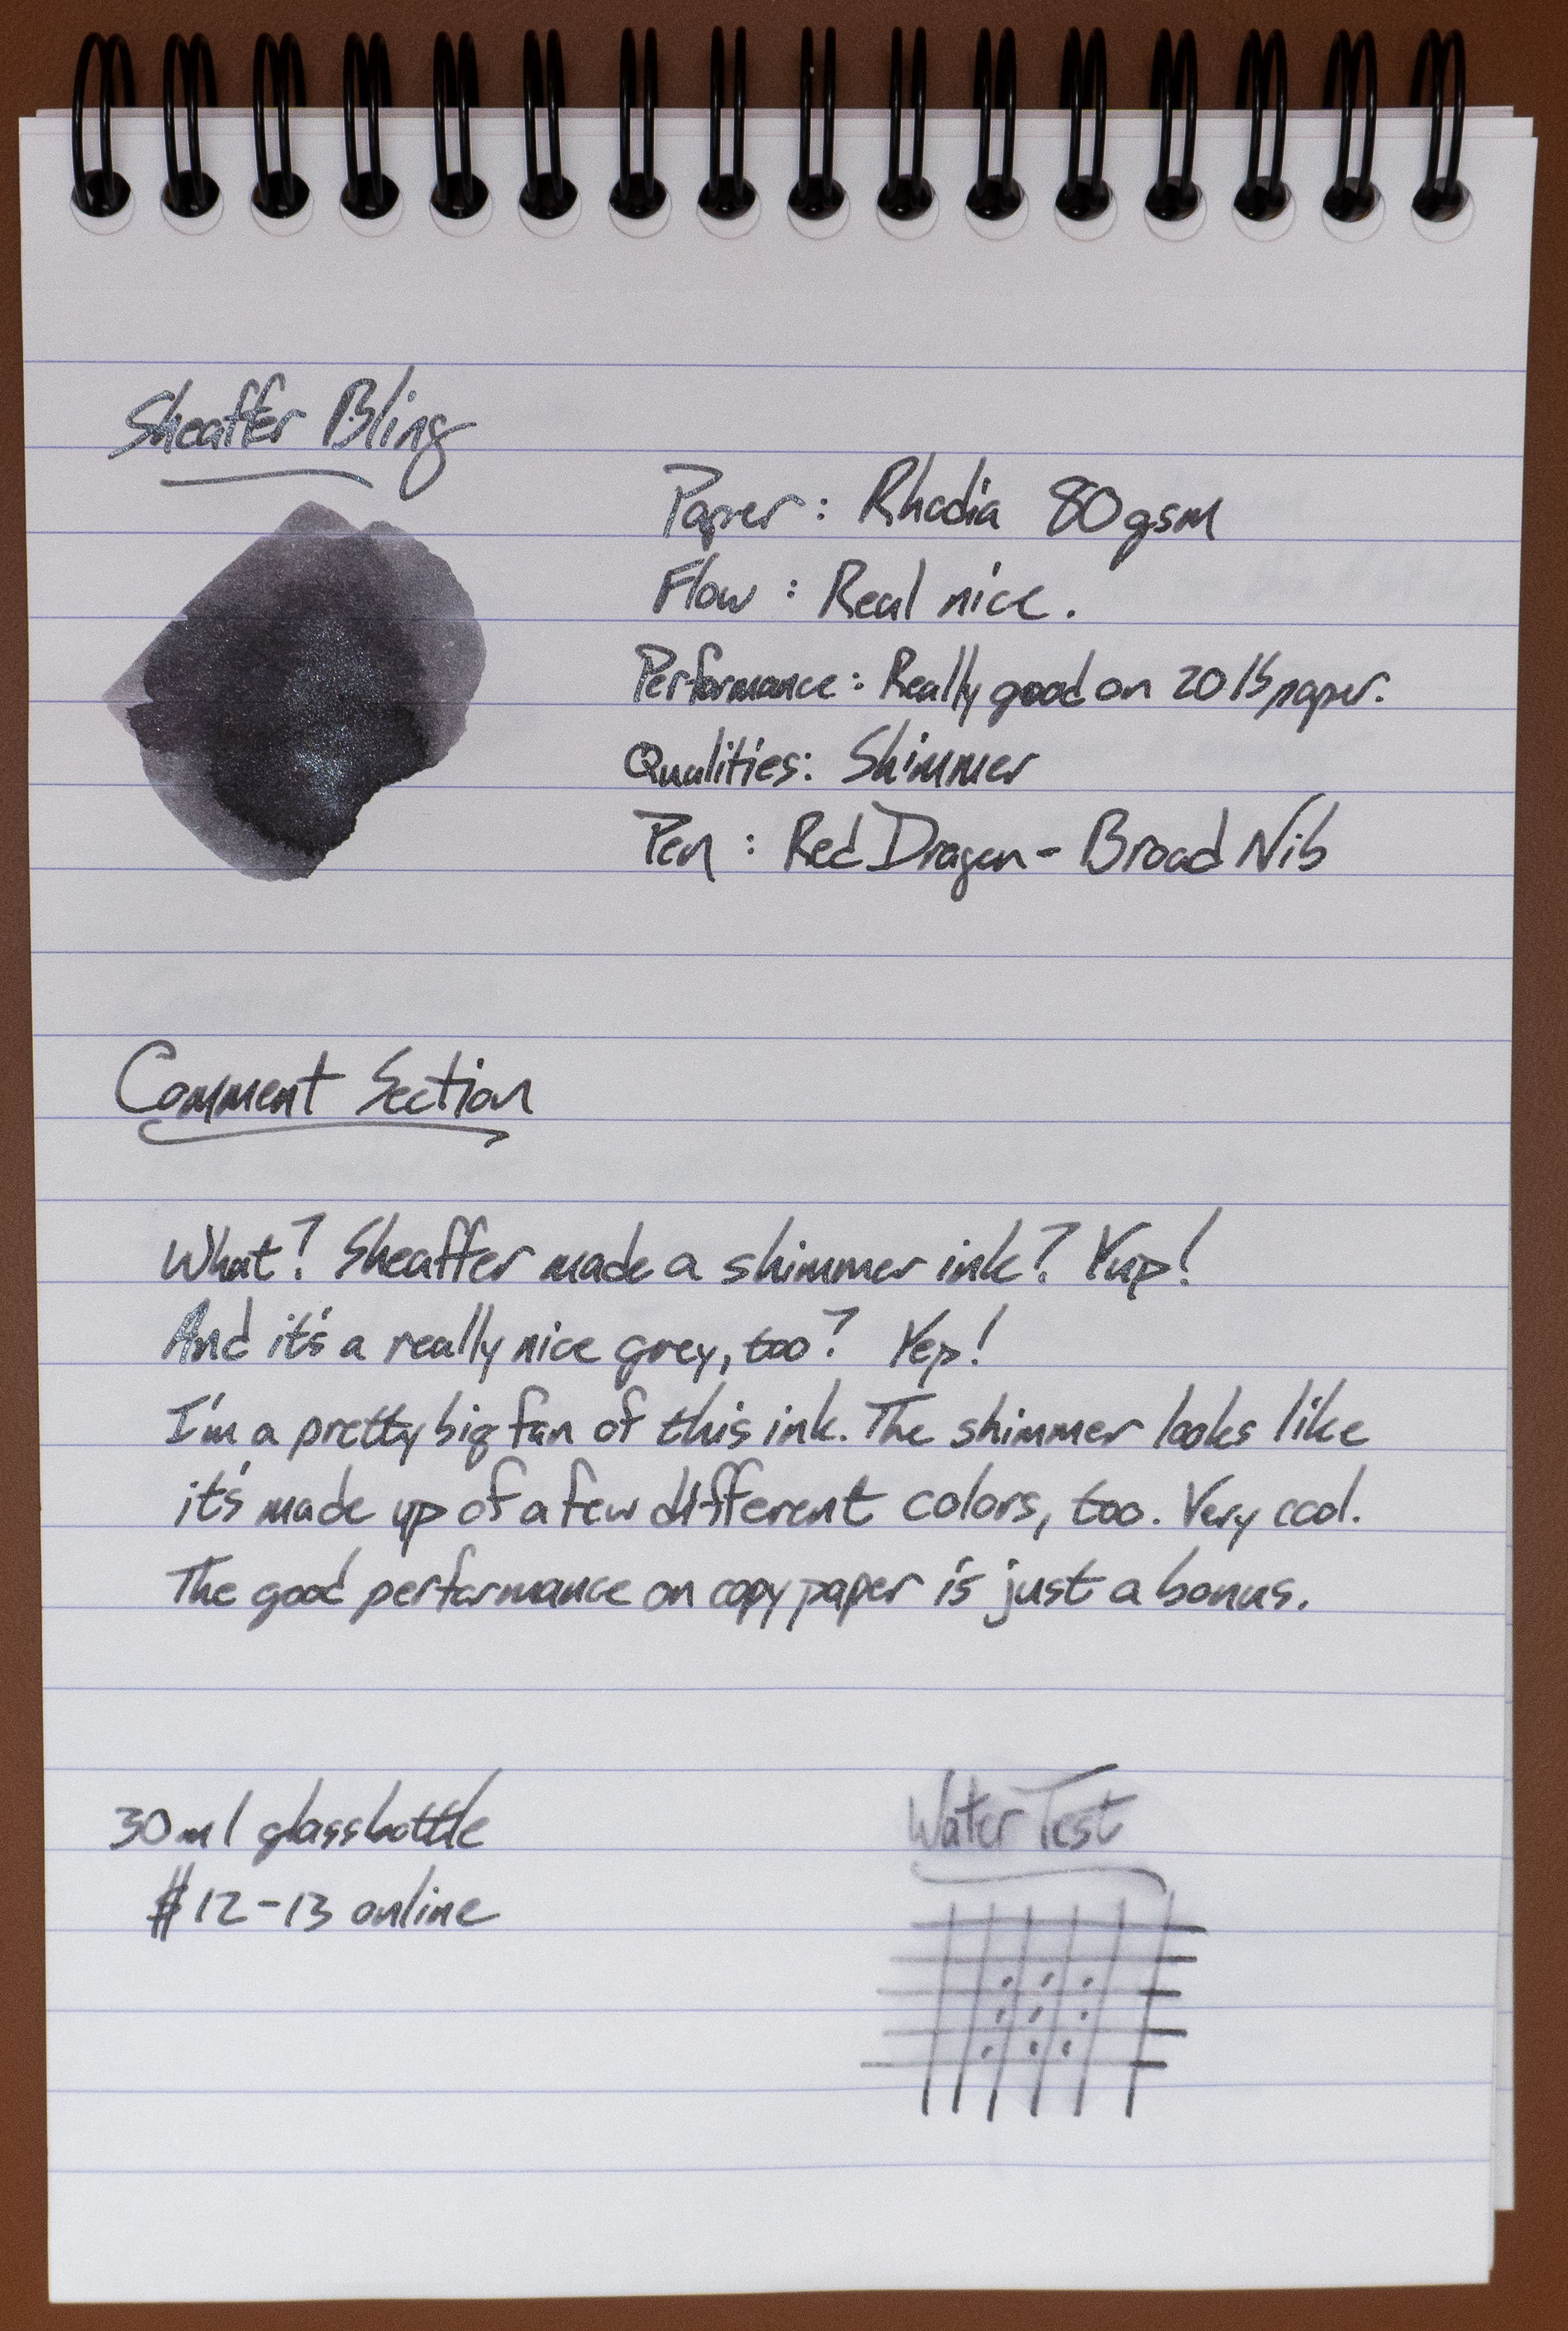 Sheaffer Bling
Paper: Rhodia 80gsm
Flow: Real nice.
Performance: Really good on 20 lb paper.
Qualities: Shimmer
Pen: Red Dragon - Broad Nib
Comment Section
What? Sheaffer made a shimmer ink? Yup!
And it's a really nice grey, too? Yep!
I'm a pretty big fan of this ink. The shimmer looks like
it's made up of a few different colors, too. Very cool.
The good performance on copy paper is just a bonus.
30ml glass bottle
$12-13 online
Water Test